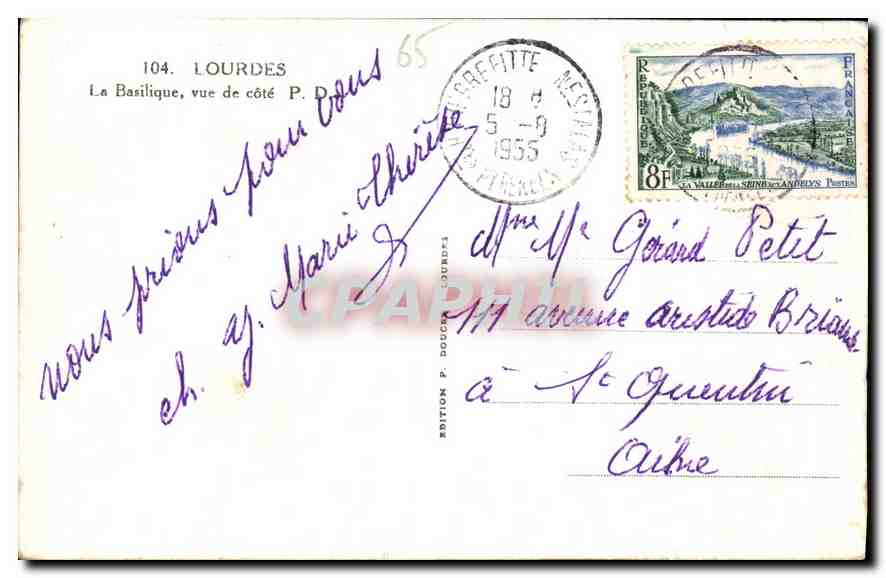 104. LOURDES
La Basilique, vue de côté P. D.
65
nous prions pour vous
ch. Marie Thérèse
PIERREFITTE NESTALAS
18 H
5 -8
1955
HTES PYRENEES
REPUBLIQUE
FRANÇAISE
8F
LA VALLEE DE LA SEINE AUX ANDELYS POSTES
EDITION P. DOUCET LOURDES
CPAPHIL
Mme Mr Gérard Petit
111 avenue Aristide Briand
à St Quentin
Aisne